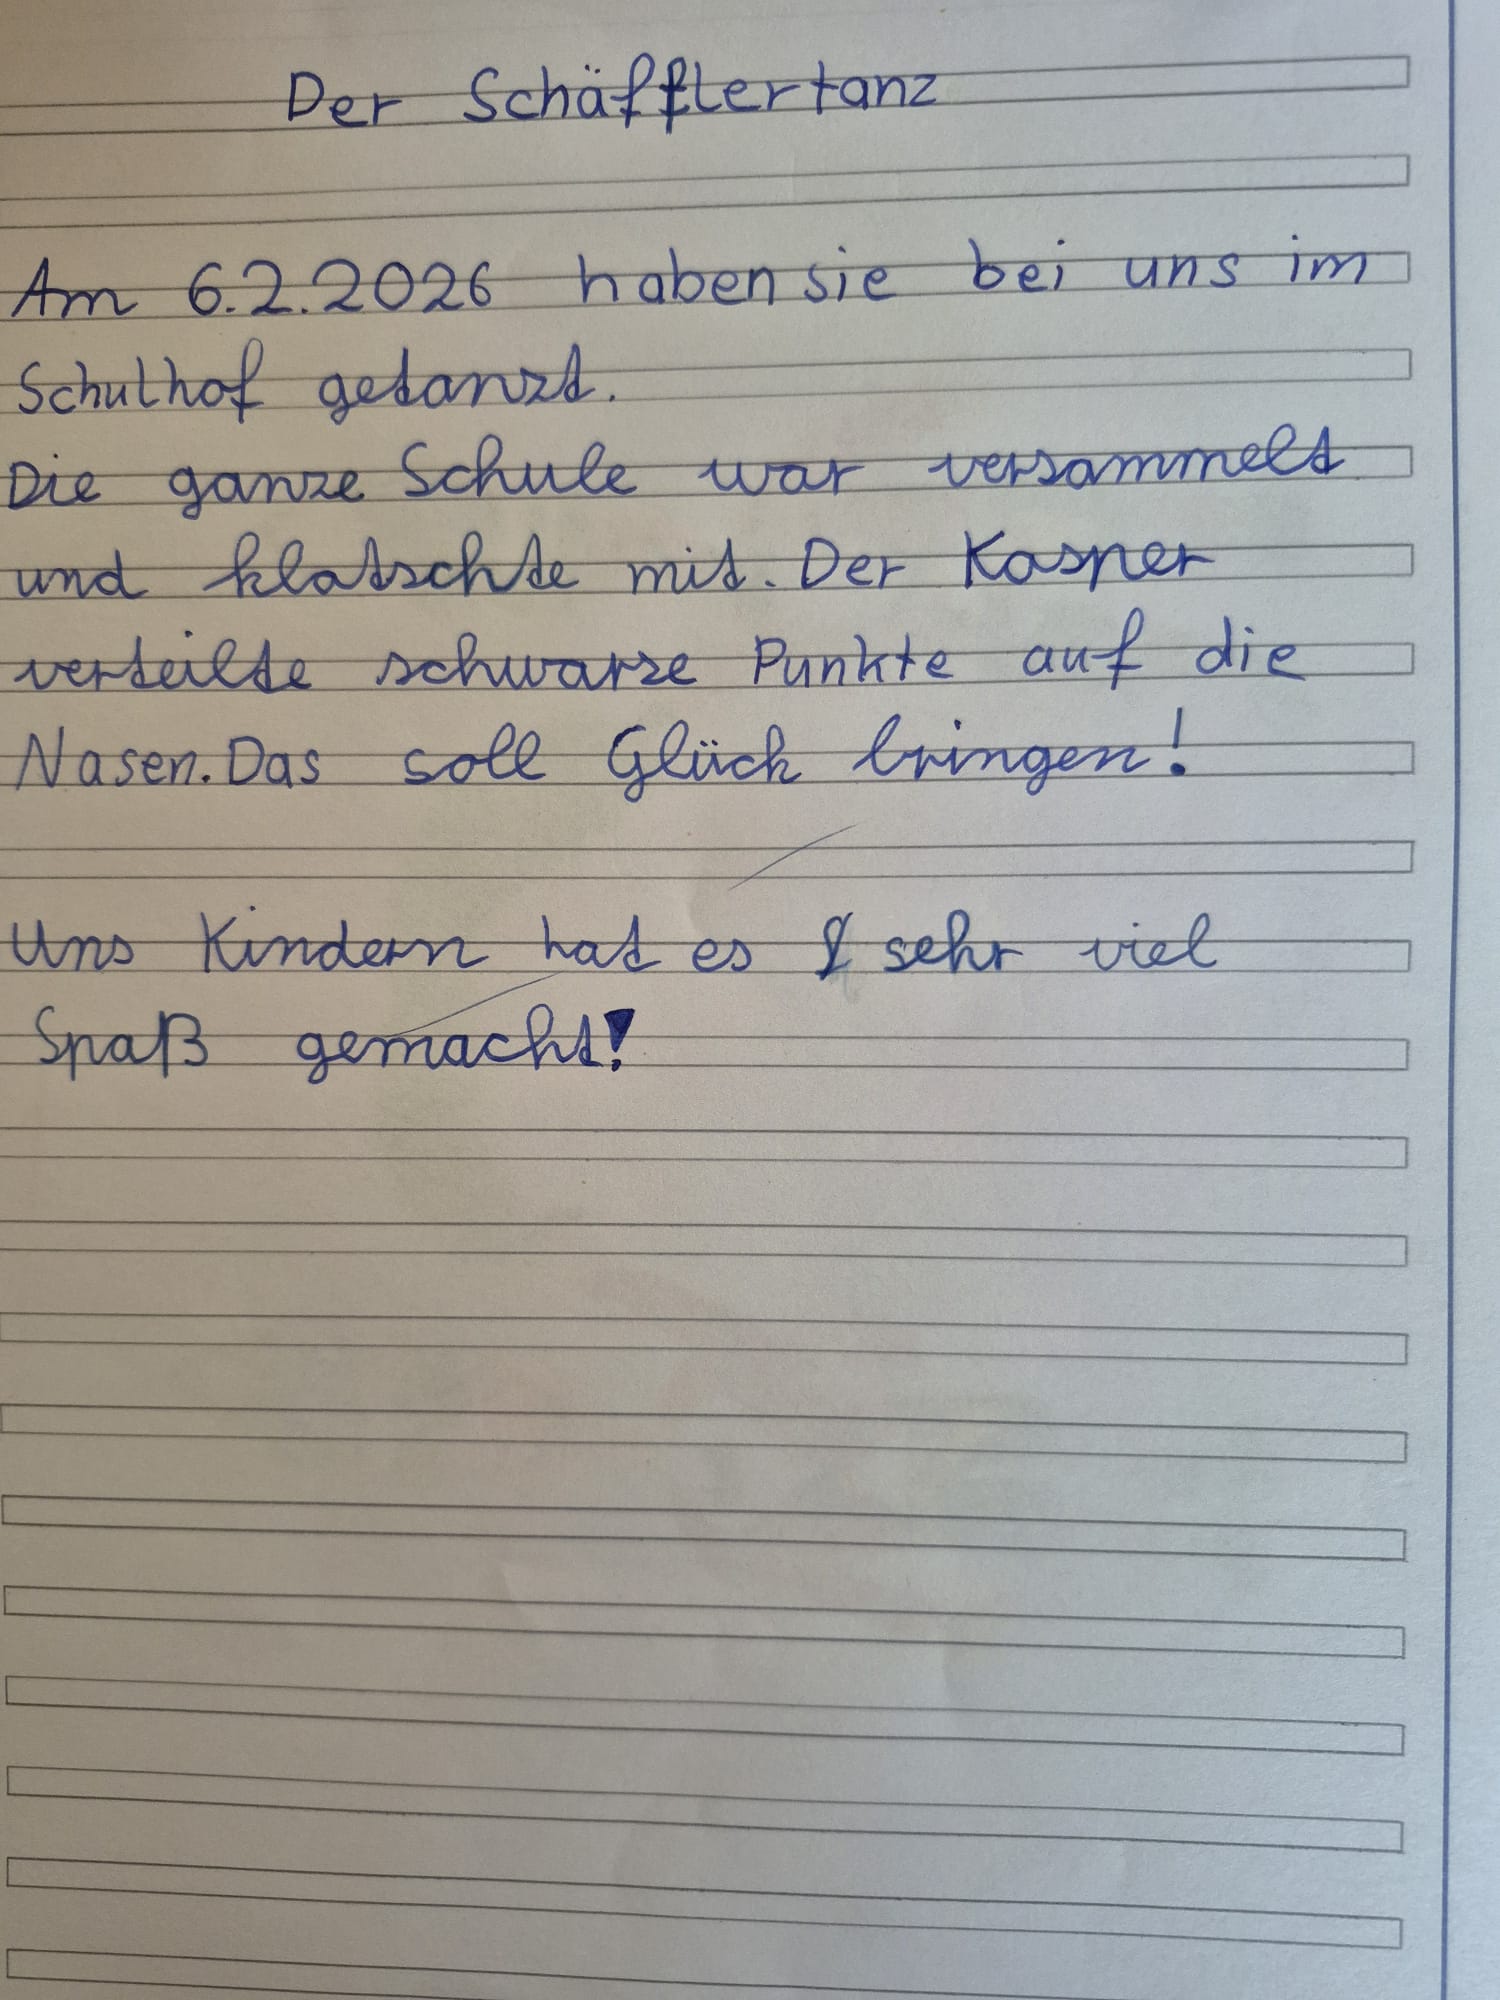 Der Schäfflertanz
Am 6.2.2026 haben sie bei uns im
Schulhof getanzt.
Die ganze Schule war versammelt
und klatschte mit. Der Kasper
verteilte schwarze Punkte auf die
Nasen. Das soll Glück bringen!
Uns Kindern hat es sehr viel
Spaß gemacht!